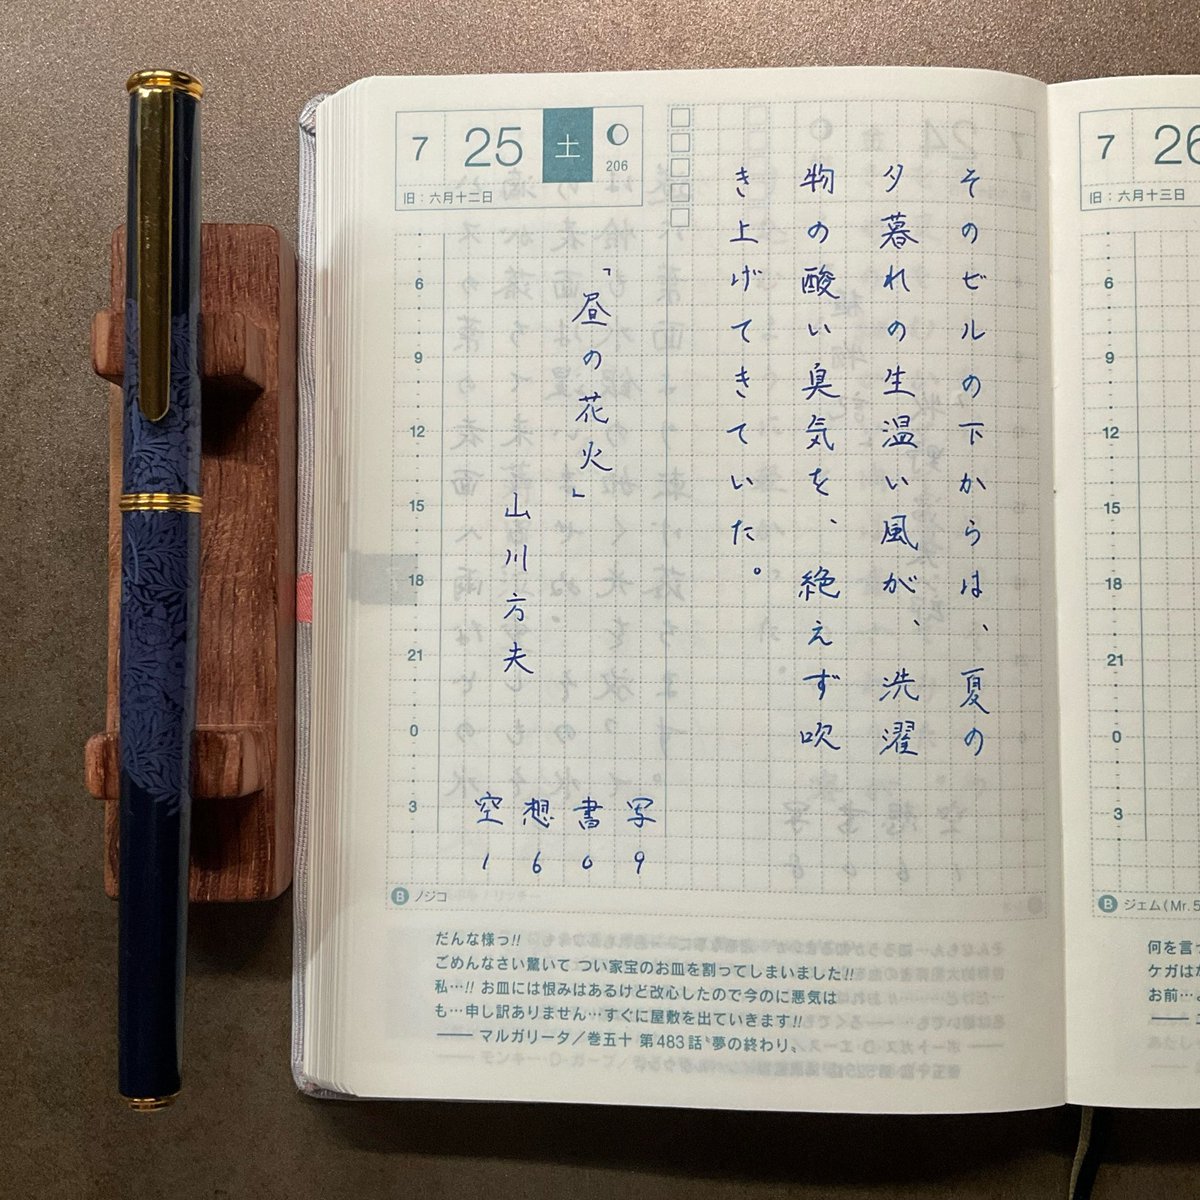 7 25 土
206
旧：六月十二日
そのゼルの下からは、夏の
夕暮れの生温い風が、洗濯
物の酸い臭気を、絶えず吹
き上げてきていた。
「昼の花火」
山川方夫
空想書写
1609
6
9
12
15
18
21
0
3
B ノジコ
だんな様っ!!
ごめんなさい驚いて つい家宝のお皿を割ってしまいました!!
私…!! お皿には恨みはあるけど改心したので今のに悪気は
も…申し訳ありません…すぐに屋敷を出ていきます!!
── マルガリータ／巻五十 第483話〝夢の終わり〟
7 26
旧：六月十三日
6
9
12
15
18
21
0
3
B ジェム(Mr.5
何を言っ
ケガは
お前…